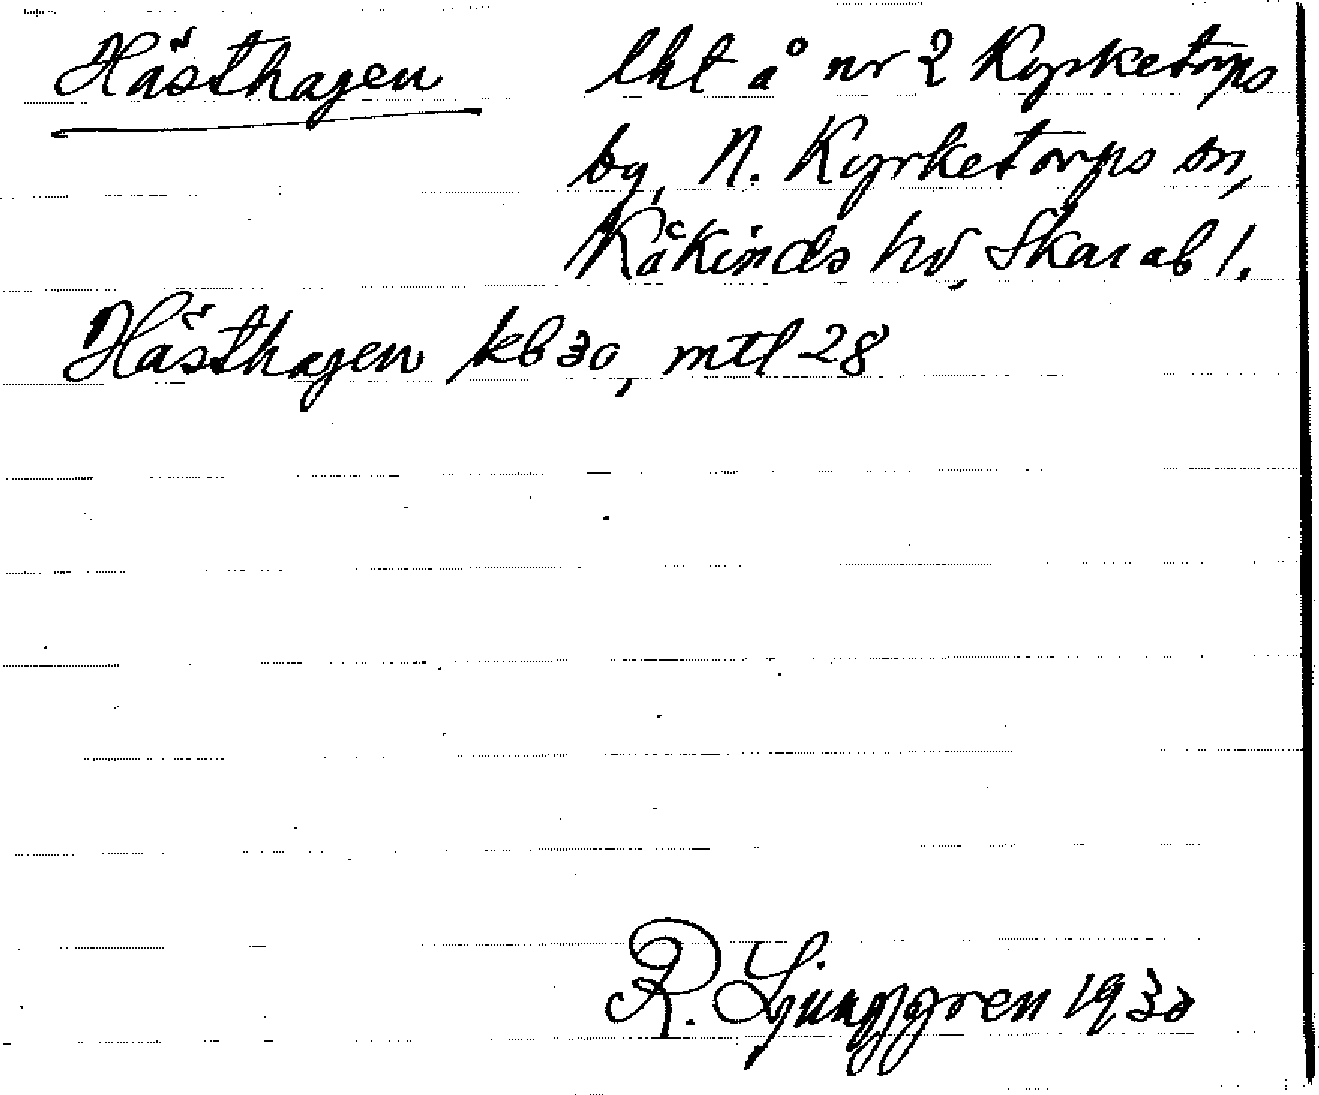 Hästhagen lht å nr 2 Kyrketorps
by, N. Kyrketorps sn,
Kåkinds hd, Skarab l.
Hästhagen kb 30, mtl 28
R. Ljunggren 1930